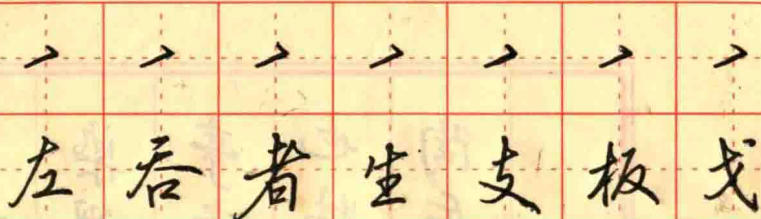 左吞者生支板戈